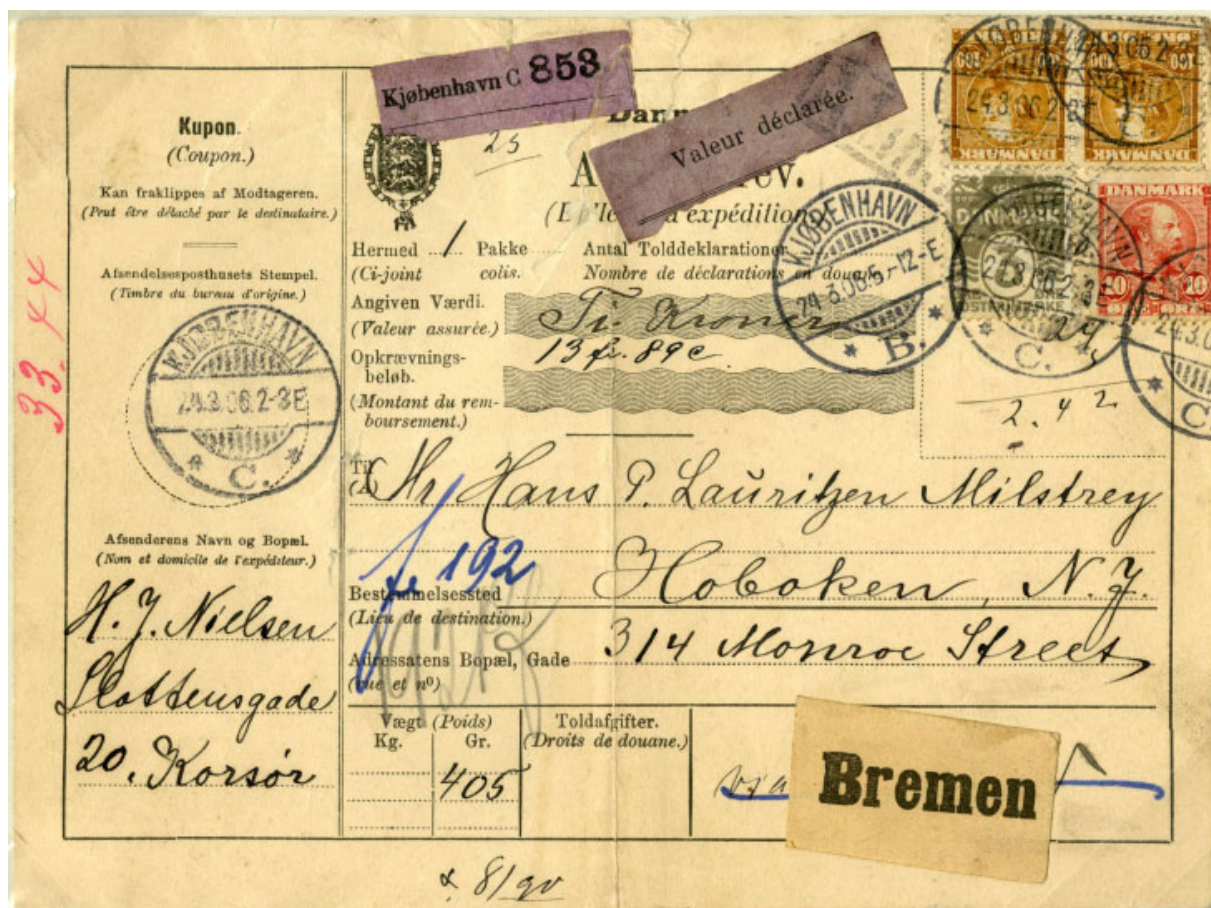 Kjøbenhavn C 853
Valeur déclarée.
25
Kupon.
(Coupon.)
Kan fraklippes af Modtageren.
(Peut être détaché par le destinataire.)
Afsendelsesposthusets Stempel.
(Timbre du bureau d'origine.)
KJØBENHAVN
24.3.06.2-3E
C.
33.44
Afsenderens Navn og Bopæl.
(Nom et domicile de l'expéditeur.)
H. J. Nielsen
Slottensgade
20. Korsør
d'expédition
Hermed 1 Pakke
(Ci-joint colis.
Antal Tolddeklarationer
Nombre de déclarations en douane
Angiven Værdi.
(Valeur assurée.)
Ti Kroner
13 fr. 89 c
Opkrævnings-
beløb.
(Montant du rem-
boursement.)
KJØBENHAVN
24.3.06.5-12-E
B.
KJØBENHAVN
24.3.06.2-3E
C.
DANMARK
DANMARK
DANMARK
10 10
2.42
Til
(A)
Mr Hans P. Lauritzen Milstrey
fr 192
Bestemmelsessted
(Lieu de destination.)
Hoboken, N.J.
Adressatens Bopæl, Gade
(rue et nº)
314 Monroe Street
Vægt (Poids)
Kg. Gr.
405
Toldafgifter.
(Droits de douane.)
via
Bremen
8/90